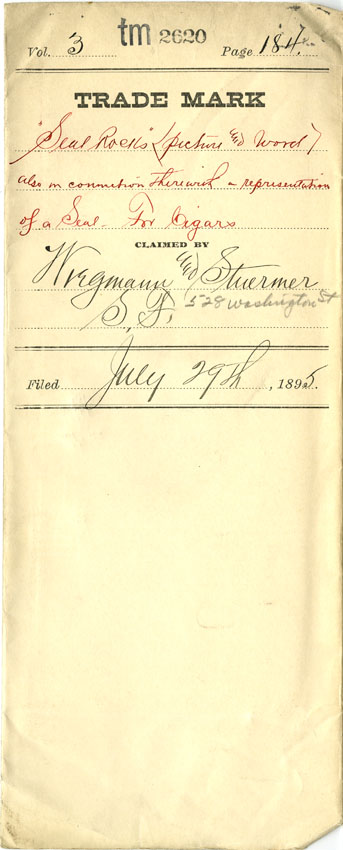 tm 2620
Vol. 3 Page 184
TRADE MARK
"Seal Rocks" (picture and word)
also in connection therewith a representation
of a Seal. For Cigars
CLAIMED BY
Wiegmann and Stuermer
S. F. 528 Washington St
Filed July 29th, 1895.